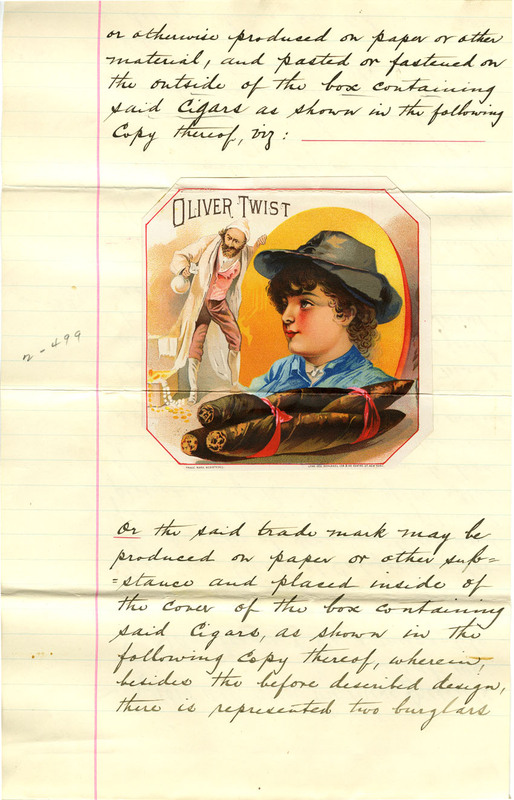 or otherwise produced on paper or other
material, and pasted or fastened on
the outside of the box containing
said Cigars as shown in the following
Copy thereof, viz:
OLIVER TWIST
n-499
TRADE MARK REGISTERED.
Or the said trade mark may be
produced on paper or other sub=
=stance and placed inside of
the cover of the box containing
said Cigars, as shown in the
following Copy thereof, wherein,
besides the before described design,
there is represented two burglars